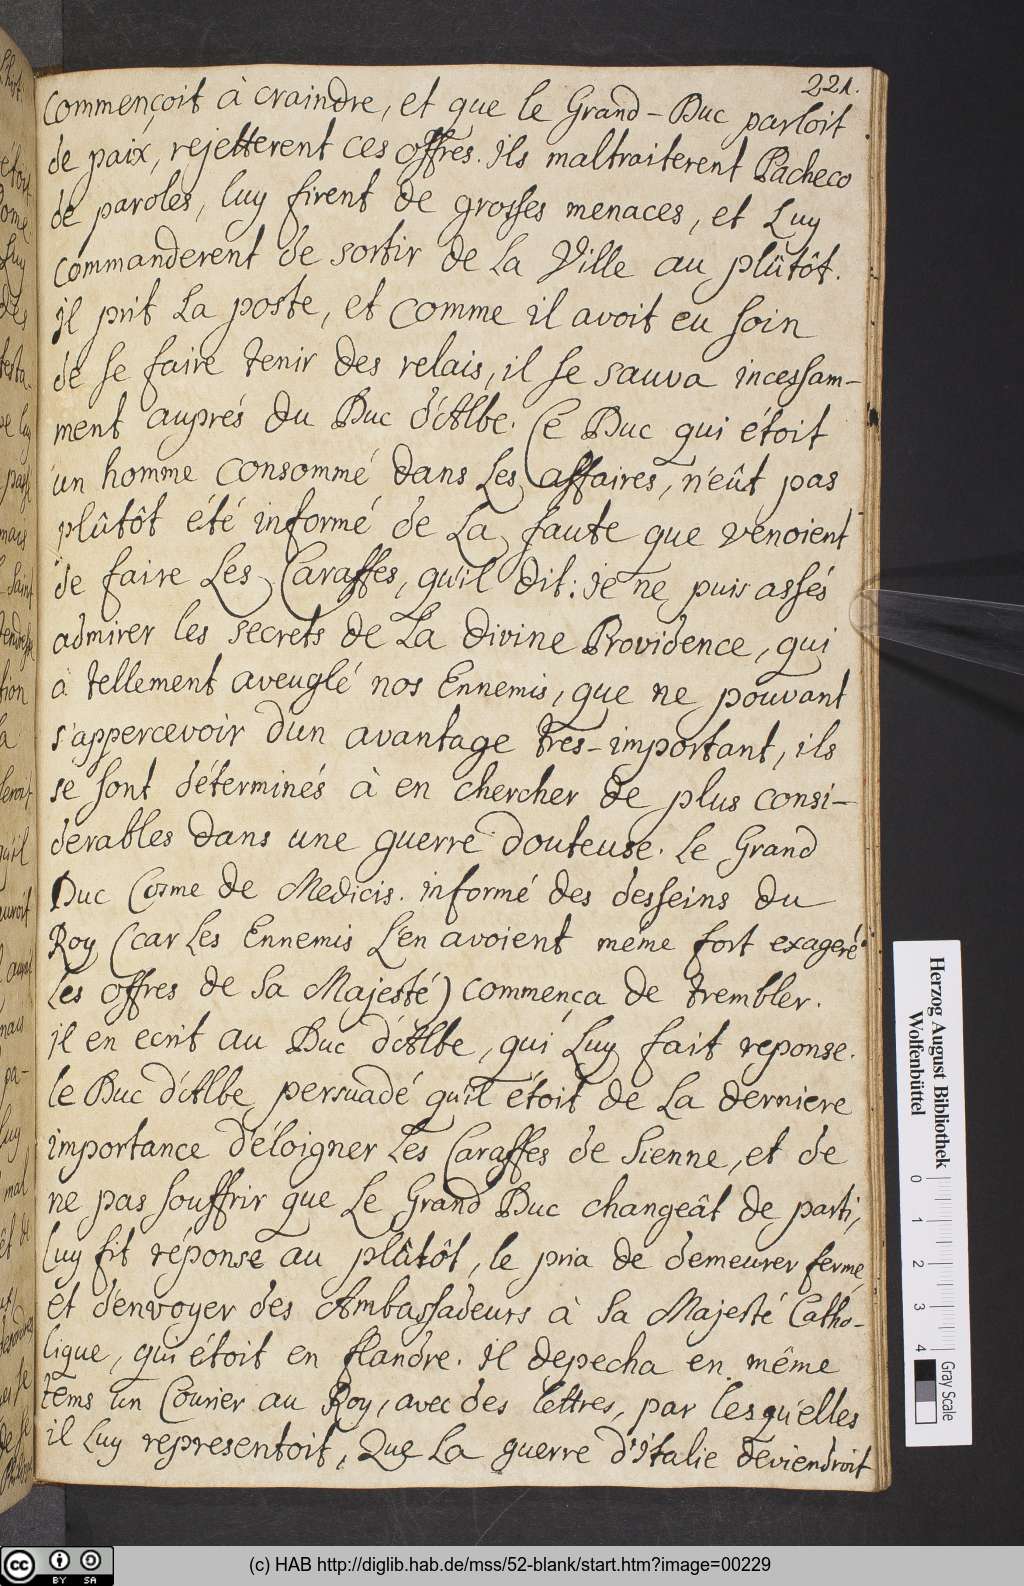 221.
commençoit à craindre, et que le Grand-Duc parloit
de paix, rejetterent ces offres. ils maltraiterent Pacheco
de paroles, luy firent de grosses menaces, et Luy
commanderent de sortir de La Ville au plûtôt.
il prit La poste, et comme il avoit eu soin
de se faire tenir des relais, il se sauva incessam-
ment auprés du Duc d'Albe. Ce Duc qui étoit
un homme consommé dans Les affaires, n'eût pas
plûtôt été informé de La faute que venoient
de faire Les Caraffes, qu'il dit: je ne puis assés
admirer les secrets de La divine Providence, qui
a tellement aveuglé nos Ennemis, que ne pouvant
s'appercevoir d'un avantage tres-important, ils
se sont déterminés à en chercher de plus consi-
derables dans une guerre douteuse. Le Grand
Duc Cosme de Medicis. informé des desseins du
Roy (car Les Ennemis L'en avoient même fort exageré
Les offres de Sa Majesté) commença de trembler.
il en ecrit au Duc d'Albe, qui Luy fait reponse.
le Duc d'Albe persuadé qu'il étoit de La derniere
importance d'éloigner Les Caraffes de Sienne, et de
ne pas souffrir que Le Grand Duc changeât de parti,
Luy fit réponse au plûtôt, le pria de demeurer ferme,
et d'envoyer des Ambassadeurs à Sa Majesté Catho-
lique, qui étoit en flandre. il depecha en même
tems un Courier au Roy, avec des lettres, par lesqu'elles
il Luy representoit, Que La guerre d'Italie deviendroit
Herzog August Bibliothek
Wolfenbüttel
0 1 2 3 4
Gray Scale
cc BY SA
(c) HAB http://diglib.hab.de/mss/52-blank/start.htm?image=00229